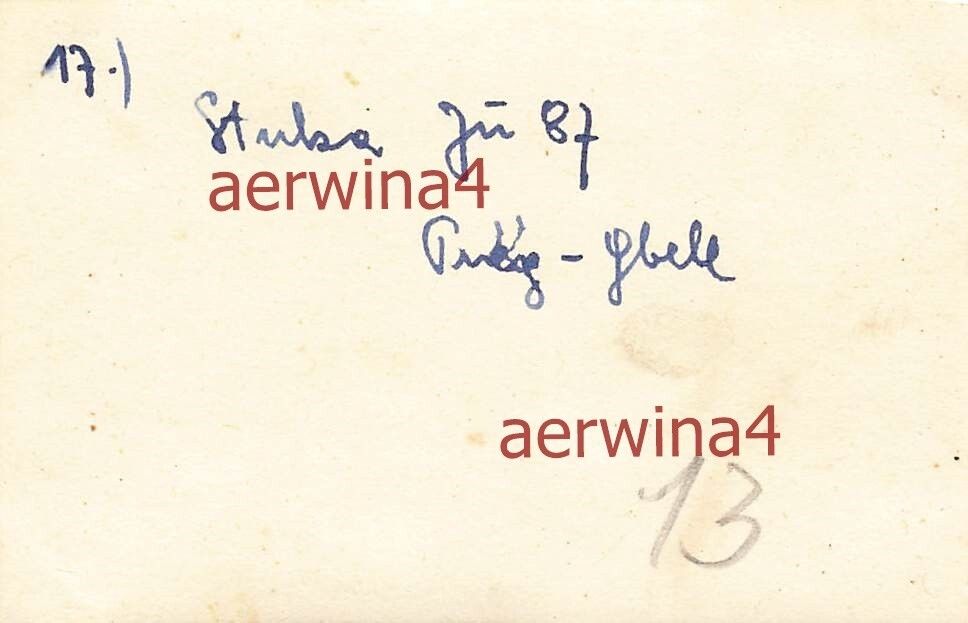 17.)
Stuka Ju 87
aerwina4
Prag - Gbell
aerwina4
13